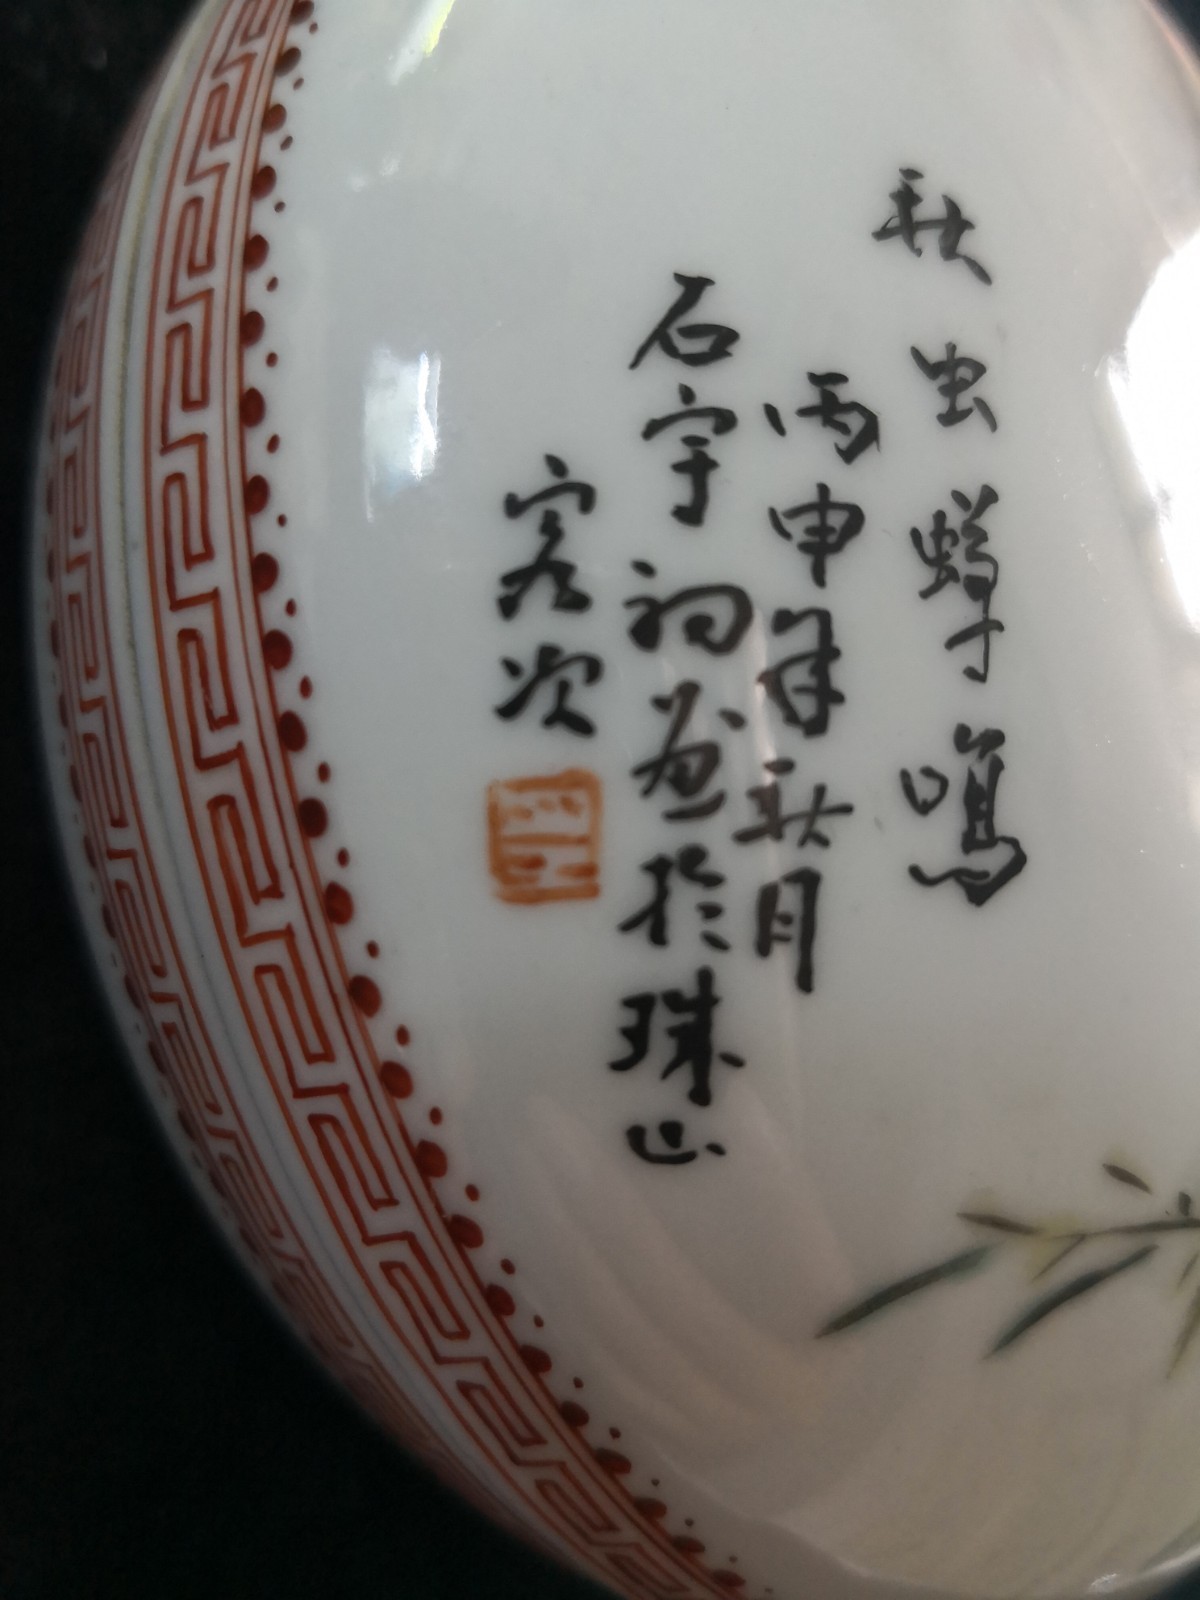 秋虫蟳鳴
丙申年秋月
石宇初畫於珠山
客次